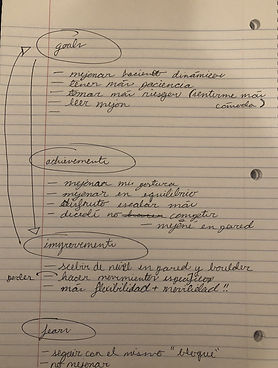 goals
- mejorar haciendo dinámicos
- tener más paciencia
- tomar más riesgos (sentirme más cómoda)
- leer mejor
achievements
- mejorar mi postura
- mejorar en equilibrio
- disfruto escalar más
- decidí no competir
- mejoré en pared
improvements
- subir de nivel en pared y boulder
poder - hacer movimientos específicos
- más flexibilidad + movilidad!!
fears
- seguir con el mismo "bloque"
- no mejorar